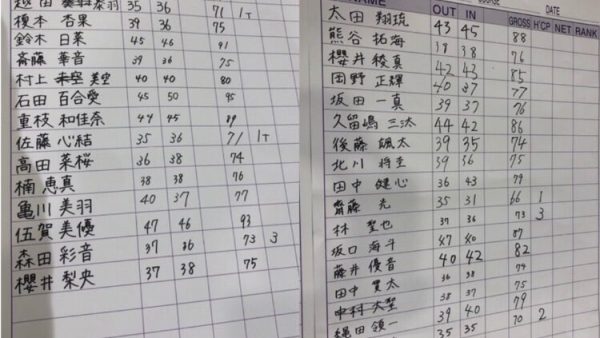 越田 泰羽 35 36 71 1T
榎本 杏果 39 36 75
鈴木 日菜 45 46 91
斎藤 華音 39 36 75
村上 美空 40 40 80
石田 百合愛 45 50 95
重枝 和佳奈 44 45 89
佐藤 心結 35 36 71 1T
高田 菜桜 36 38 74
楠 恵真 38 38 76
亀川 美羽 40 37 77
伍賀 美優 47 46 93
森田 彩音 37 36 73 3
櫻井 梨央 37 38 75
NAME OUT IN COURSE GROSS H'CP DATE NET RANK
太田 翔琉 43 45 88
熊谷 拓海 38 38 76
櫻井 稜真 42 43 85
岡野 正輝 40 37 77
坂田 一真 39 37 76
久留嶋 三汰 44 42 86
後藤 颯太 39 35 74
北川 将圭 39 36 75
田中 健心 36 43 79
齋藤 充 35 31 66 1
林 聖也 37 36 73 3
坂口 海斗 47 40 87
藤井 優音 40 42 82
田中 貫太 36 38 74
中村 大聖 38 37 75
39 40 79
縄田 領一 35 35 70 2